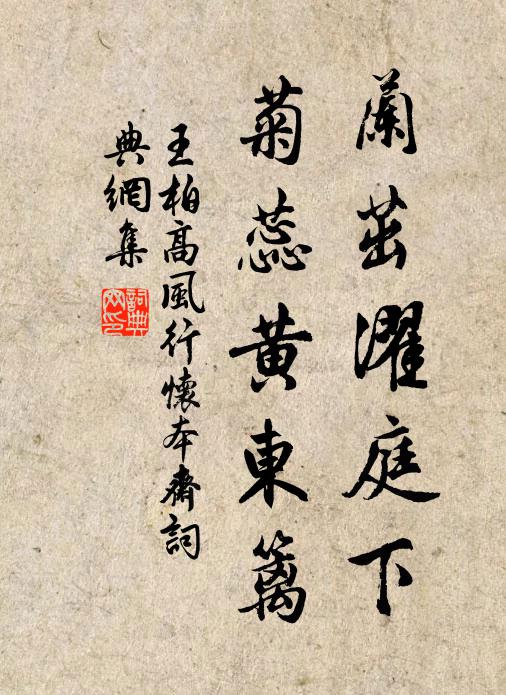 蘭茁濯庭下
菊蕊黄東籬
王柏高風行懷本齋詞
典網集
詞典
網印